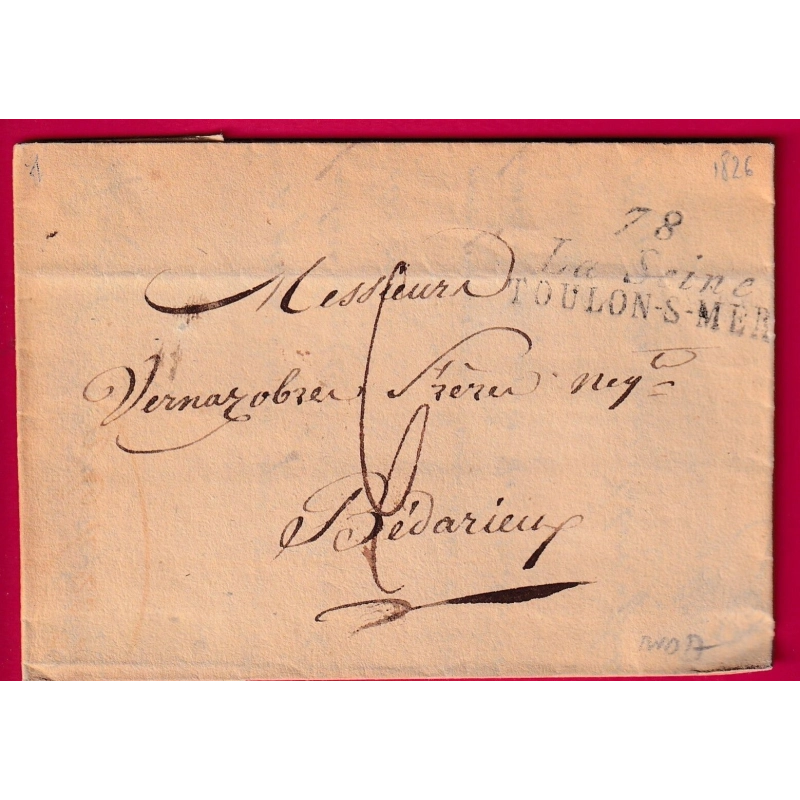 1826
78
La Seine
TOULON-S-MER
Messieurs
Vernazobres Frères negts
Bédarieux